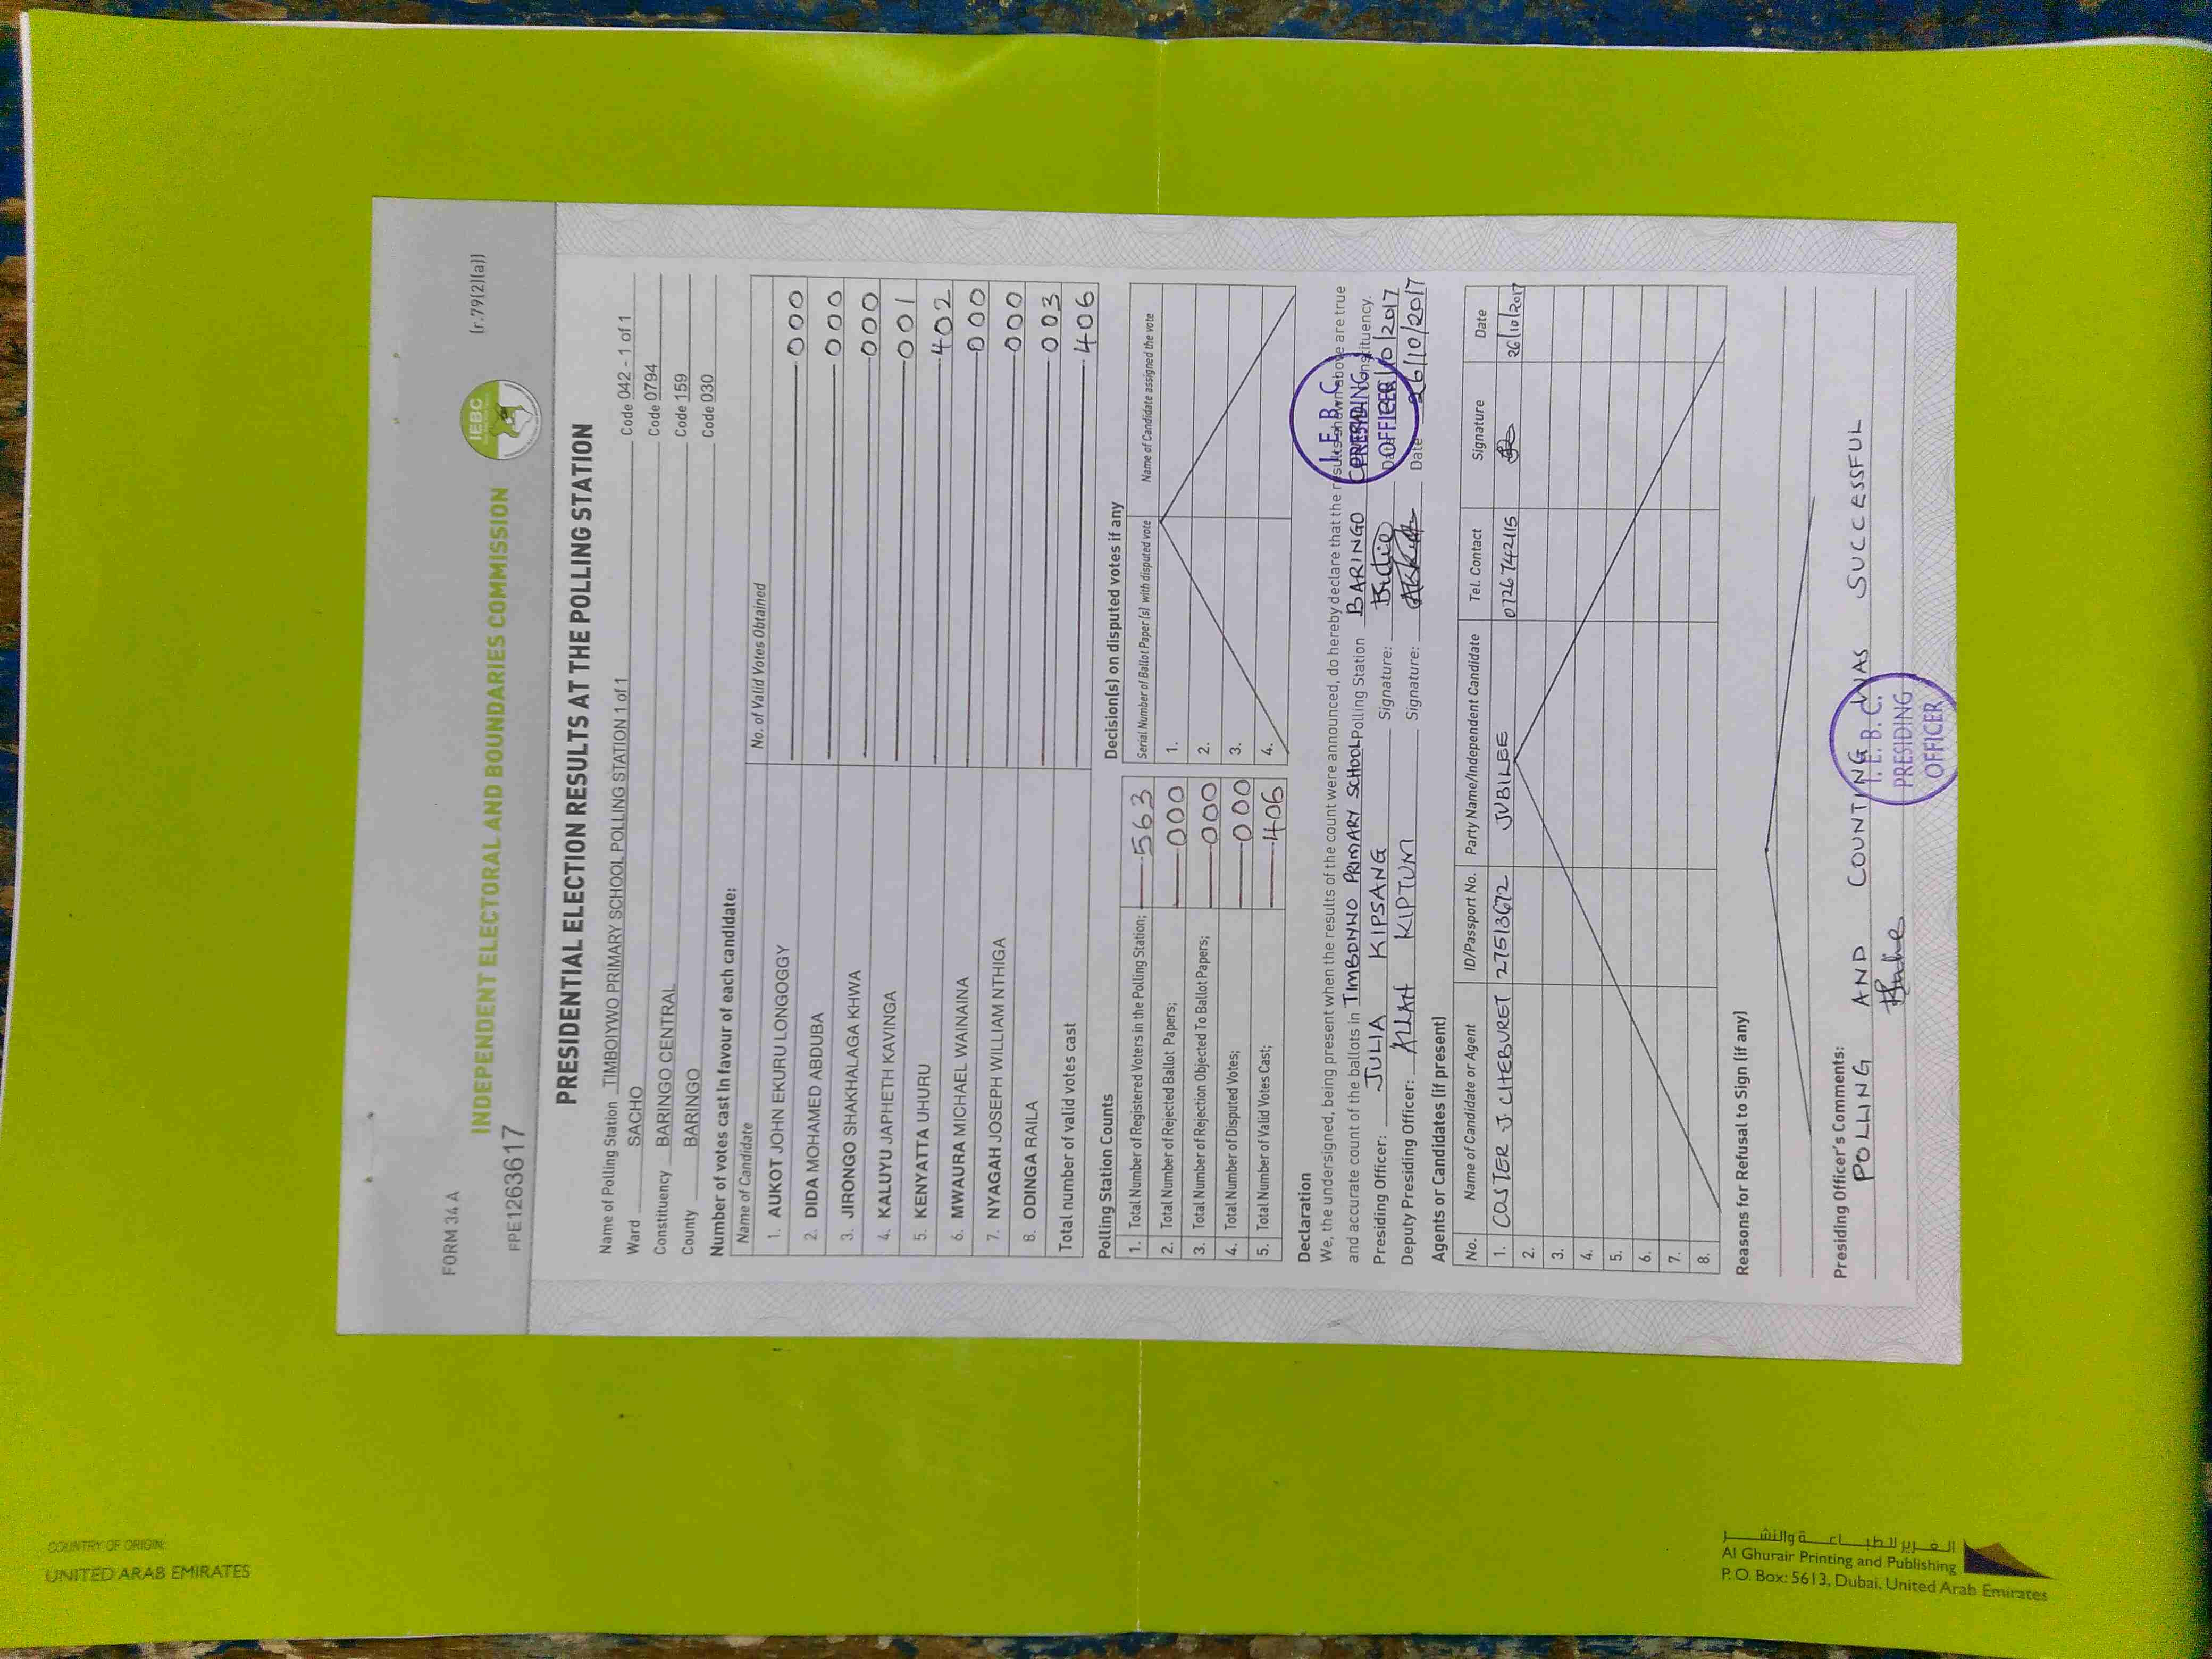 FORM 34 A
(r.79(2)(a))
IEBC
INDEPENDENT ELECTORAL AND BOUNDARIES COMMISSION
FPE1263617
PRESIDENTIAL ELECTION RESULTS AT THE POLLING STATION
Name of Polling Station TIMBOIYWO PRIMARY SCHOOL POLLING STATION 1 of 1 Code 042 - 1 of 1
Ward SACHO Code 0794
Constituency BARINGO CENTRAL Code 159
County BARINGO Code 030
Number of votes cast in favour of each candidate:
Name of Candidate No. of Valid Votes Obtained
1. AUKOT JOHN EKURU LONGOGGY 000
2. DIDA MOHAMED ABDUBA 000
3. JIRONGO SHAKHALAGA KHWA 000
4. KALUYU JAPHETH KAVINGA 001
5. KENYATTA UHURU 402
6. MWAURA MICHAEL WAINAINA 000
7. NYAGAH JOSEPH WILLIAM NTHIGA 000
8. ODINGA RAILA 003
Total number of valid votes cast 406
Polling Station Counts
1. Total Number of Registered Voters in the Polling Station; 563
2. Total Number of Rejected Ballot Papers; 000
3. Total Number of Rejection Objected To Ballot Papers; 000
4. Total Number of Disputed Votes; 000
5. Total Number of Valid Votes Cast; 406
Decision(s) on disputed votes if any
Serial Number of Ballot Paper (s) with disputed vote Name of Candidate assigned the vote
1.
2.
3.
4.
Declaration
We, the undersigned, being present when the results of the count were announced, do hereby declare that the results shown above are true
and accurate count of the ballots in TIMBOINO PRIMARY SCHOOL Polling Station BARINGO CENTRAL Constituency.
Presiding Officer: JULIA KIPSANG Signature: Date 26/10/2017
Deputy Presiding Officer: ALLAN KIPTUM Signature: Date 26/10/2017
I.E.B.C.
PRESIDING
OFFICER
Agents or Candidates (if present)
No. Name of Candidate or Agent ID/Passport No. Party Name/Independent Candidate Tel. Contact Signature Date
1. COSTER J. CHEBURET 27513672 JUBILEE 0726742115 26/10/2017
2.
3.
4.
5.
6.
7.
8.
Reasons for Refusal to Sign (if any)
Presiding Officer's Comments:
POLLING AND COUNTING WAS SUCCESSFUL
I.E.B.C.
PRESIDING
OFFICER
COUNTRY OF ORIGIN:
UNITED ARAB EMIRATES
الغرير للطباعة والنشر
Al Ghurair Printing and Publishing
P.O. Box: 5613, Dubai, United Arab Emirates